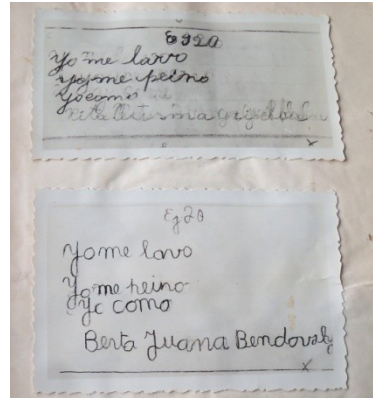 Eg 20
Yo me lavo
yo me peino
Yo como
Ej 20
Yo me lavo
Yo me peino
Yo como
Berta Juana Bendovaly
x